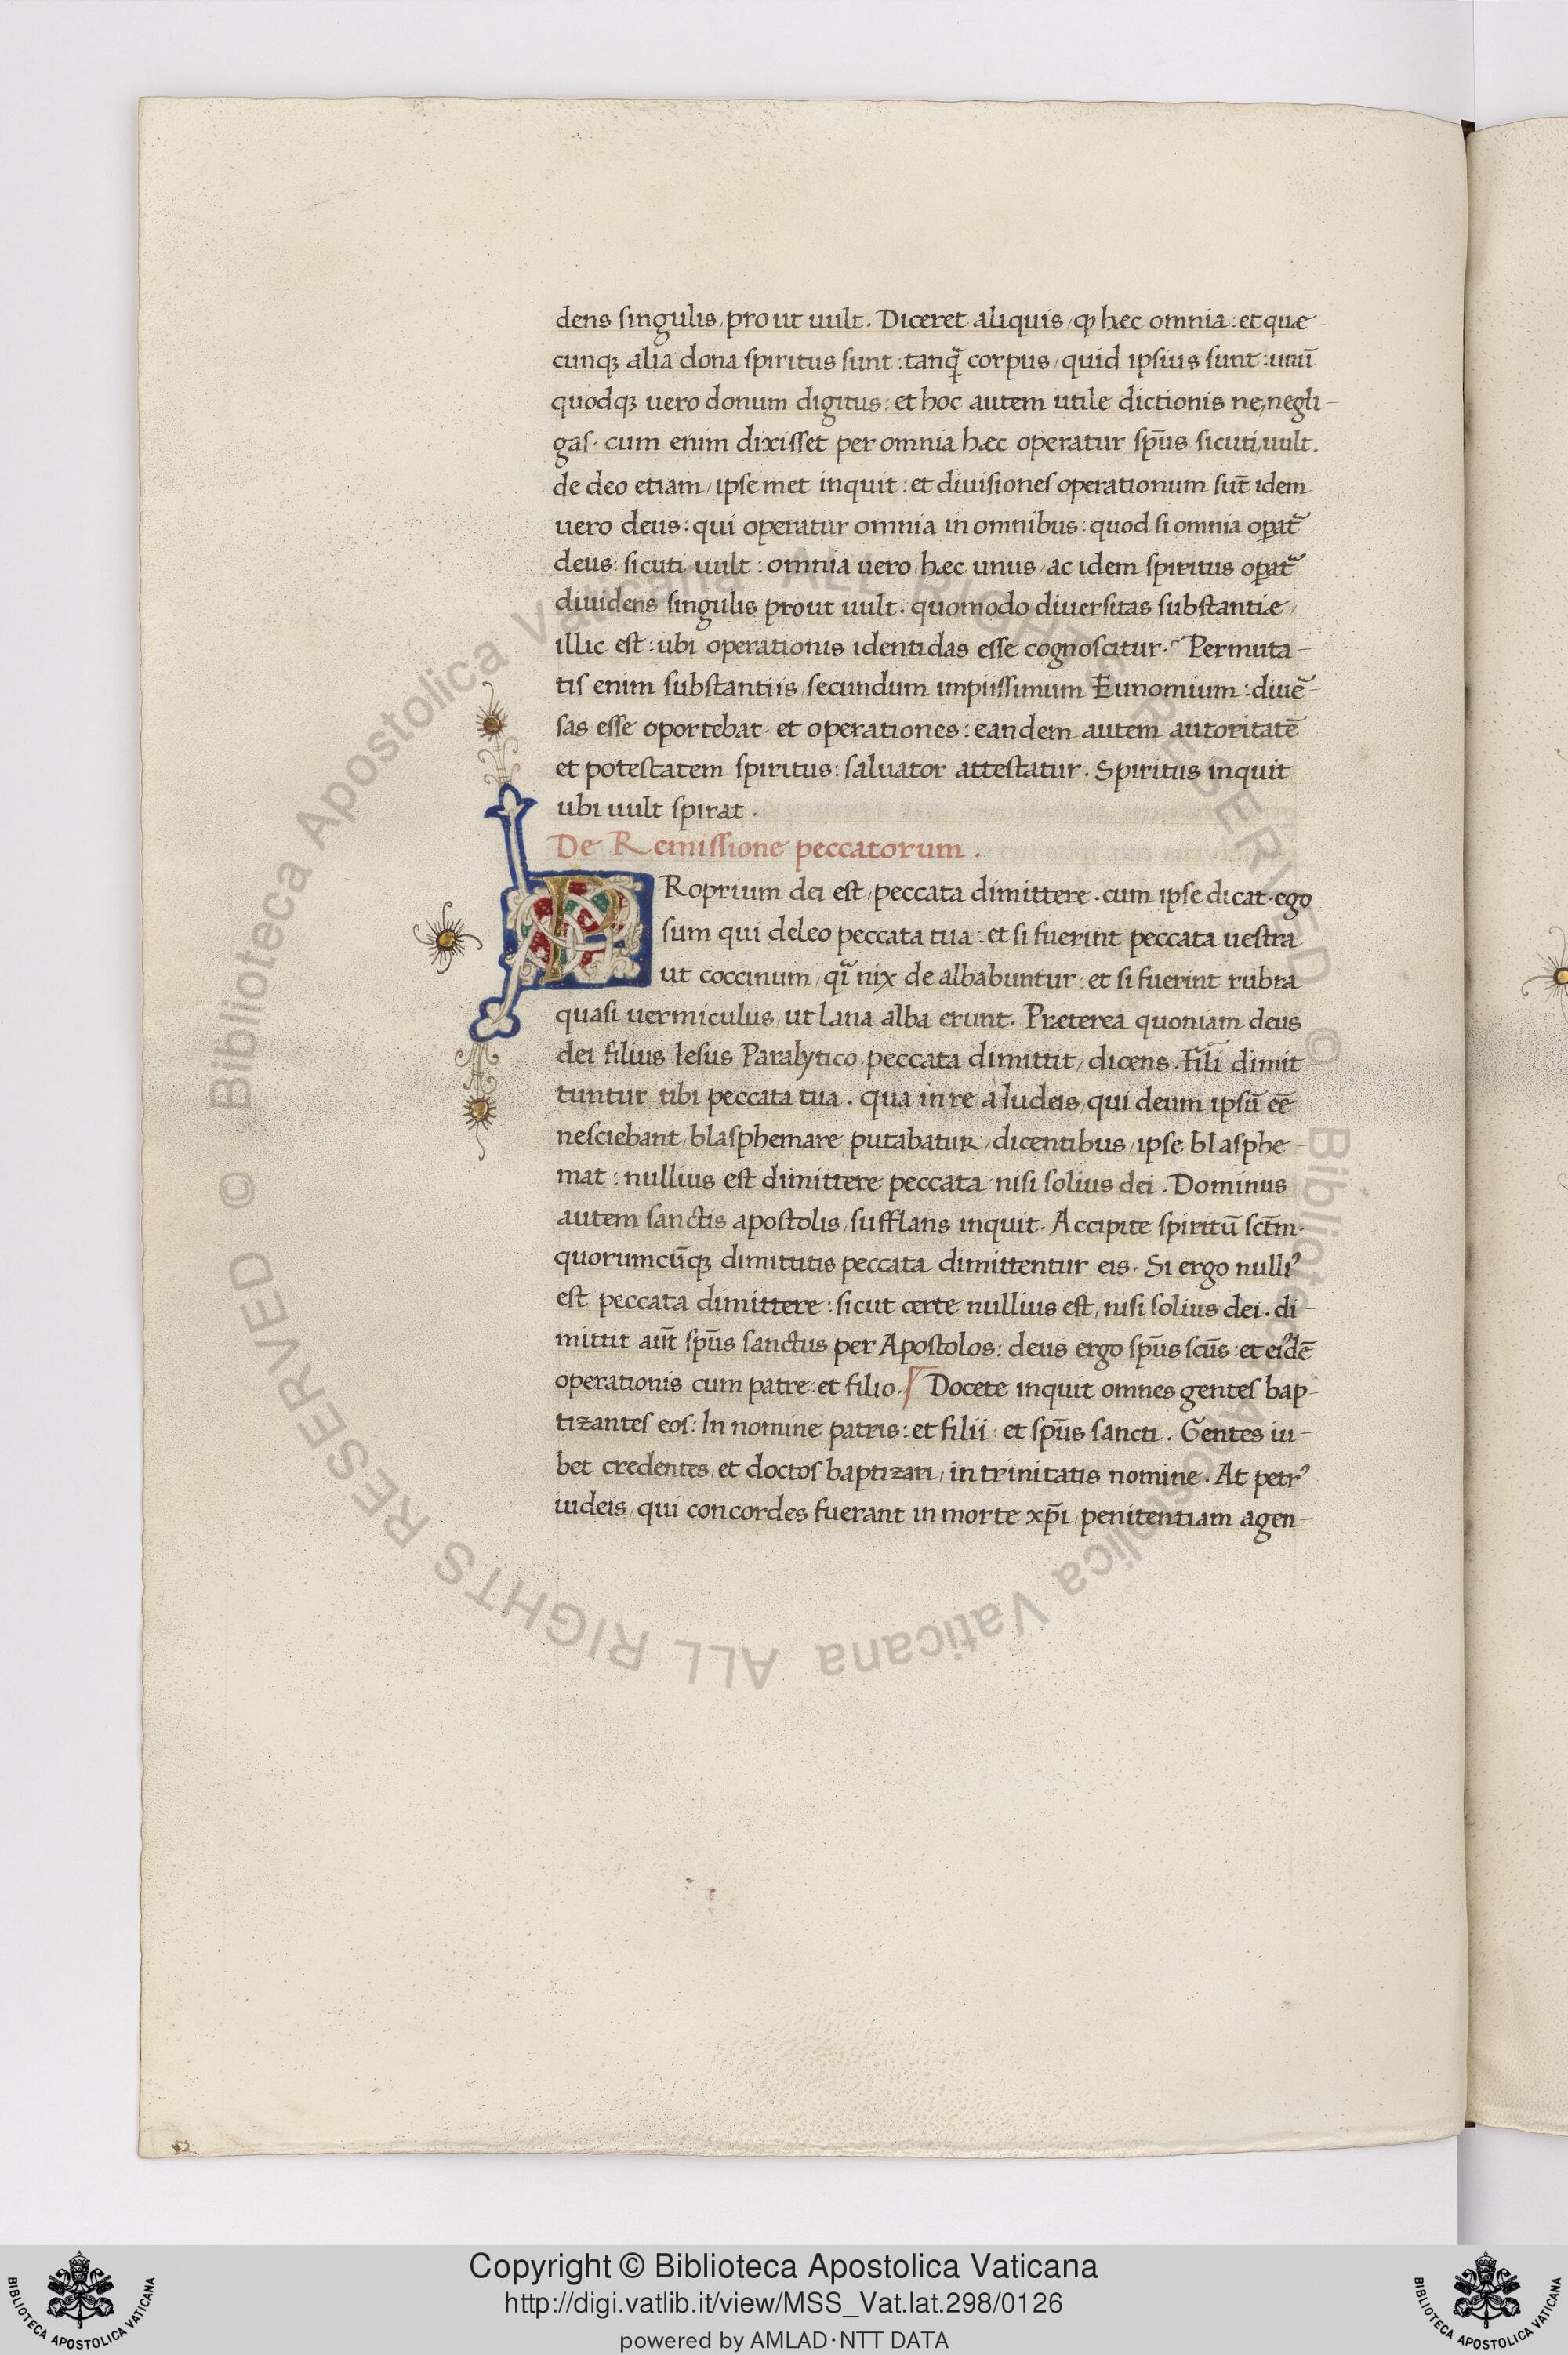 dens singulis, pro ut uult. Diceret aliquis, ꝙ hæc omnia: et quæ-
cunqꝫ alia dona spiritus sunt: tanq̃ corpus, quid ipsius sunt: unũ
quodqꝫ uero donum digitus: et hoc autem utile dictionis ne, negli-
gas. cum enim dixisset per omnia hæc operatur sp̃us sicuti, uult.
de deo etiam, ipse met inquit: et diuisiones operationum sũt idem
uero deus: qui operatur omnia in omnibus: quod si omnia oꝑat᷑
deus: sicuti uult: omnia uero hæc unus, ac idem spiritus oꝑat᷑
diuidens singulis prout uult. quomodo diuersitas substantiæ,
illic est: ubi operationis identidas esse cognoscitur. Permuta-
tis enim substantiis, secundum impiissimum Eunomium: diuẽ-
sas esse oportebat. et operationes: eandem autem autoritatẽ
et potestatem spiritus: saluator attestatur. Spiritus inquit
ubi uult spirat.
De Remissione peccatorum.
PRoprium dei est, peccata dimittere. cum ipse dicat. ego
sum qui deleo peccata tua: et si fuerint peccata uestra
ut coccinum, qĩ nix de albabuntur: et si fuerint rubra
quasi uermiculus, ut lana alba erunt. Præterea quoniam deus
dei filius Iesus Paralytico peccata dimittit, dicens. Fili dimit-
tuntur tibi peccata tua. qua in re a Iudeis, qui deum ipsũ eẽ
nesciebant, blasphemare putabatur, dicentibus, ipse blasphe-
mat: nullius est dimittere peccata nisi solius dei. Dominus
autem sanctis apostolis, sufflans inquit. Accipite spiritũ sct̃m.
quorumcũqꝫ dimittitis peccata dimittentur eis. Si ergo nulliꝰ
est peccata dimittere: sicut certe nullius est, nisi solius dei. di-
mittit aũt sp̃us sanctus per Apostolos: deus ergo sp̃us sc̃us: et eiꝰdẽ
operationis cum patre: et filio. Docete inquit omnes gentes bap-
tizantes eos: In nomine patris: et filii: et sp̃us sancti. Gentes iu-
bet credentes, et doctos baptizari, in trinitatis nomine. At petrꝰ
iudeis, qui concordes fuerant in morte xp̃i, penitentiam agen-
Copyright © Biblioteca Apostolica Vaticana
http://digi.vatlib.it/view/MSS_Vat.lat.298/0126
powered by AMLAD·NTT DATA
BIBLIOTECA APOSTOLICA VATICANA
BIBLIOTECA APOSTOLICA VATICANA
© Biblioteca Apostolica Vaticana ALL RIGHTS RESERVED
© Biblioteca Apostolica Vaticana ALL RIGHTS RESERVED